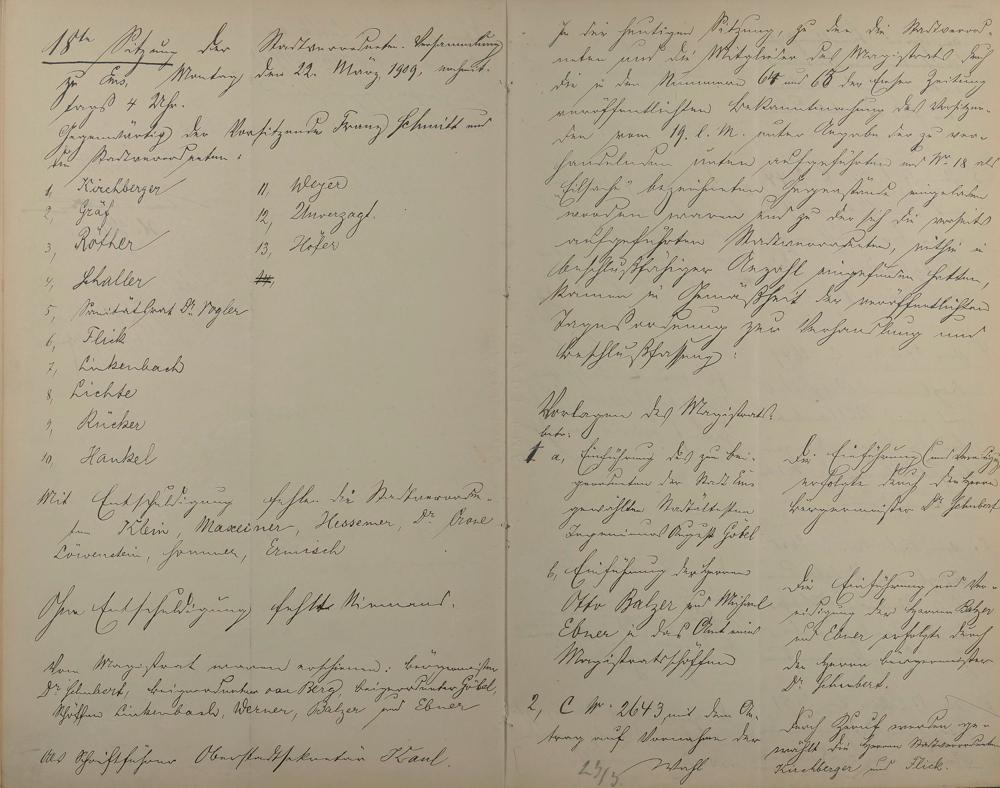 18te Sitzung der Stadtverordneten-Versammlung
zu Ems, Montag den 22. März 1909, nachmit-
tags 4 Uhr.
Gegenwärtig der Vorsitzende Franz Schmitt und
die Stadtverordneten:
1, Kirchberger
2, Gräf
3, Röther
4, Schaller
5, Sanitätsrat Dr. Vogler
6, Flick
7, Linkenbach
8, Lichte
9, Rücker
10, Hankel
11, Weyer
12, Unverzagt.
13, Höfer
14,
Mit Entschuldigung fehlen die Stadtverordne-
ten Klein, Maxeiner, Hessemer, Dr.
Löwenstein, Sommer, Ermisch
Ohne Entschuldigung fehlt Niemand.
Vom Magistrat waren erschienen: Bürgermeister
Dr. Schubert, Beigeordneter van Berg, Beigeordneter Göbel,
Schöffen Linkenbach, Werner, Balzer und Ebner
Als Schriftführer Oberstadtsekretär Kaul.
In der heutigen Sitzung, zu der die Stadtverord-
neten und die Mitglieder des Magistrats durch
die in den Nummern 64 und 65 der Emser Zeitung
veröffentlichten Bekanntmachung des Vorsitzen-
den vom 19. l. M. unter Angabe der zu ver-
handelnden unten aufgeführten und No. 18 als
"Eilsache" bezeichneten Gegenstände eingeladen
worden waren und zu der sich die vorseits
aufgeführten Stadtverordneten, mithin in
beschlußfähiger Anzahl eingefunden hatten,
kamen in Gemäßheit der veröffentlichten
Tagesordnung zur Verhandlung und
Beschlußfassung:
Vorlagen des Magistrats.
betr.
1 a, Einführung des zum Bei-
geordneten der Stadt Ems
gewählten Stadtältesten
Ingenieurs August Göbel
Die Einführung (und
erfolgte durch den Herrn
Bürgermeister Dr. Schubert
b, Einführung der Herren
Otto Balzer und Michael
Ebner in das Amt eines
Magistratsschöffen
Die Einführung und Ver-
eidigung der Herren Balzer
und Ebner erfolgte durch
den Herrn Bürgermeister
Dr. Schubert.
2, C No. 2643 mit dem An-
trag auf Vornahme der
Wahl
Durch Zuruf wurden ge-
wählt die Herren Stadtverordneten
Kirchberger und Flick.
23/3.